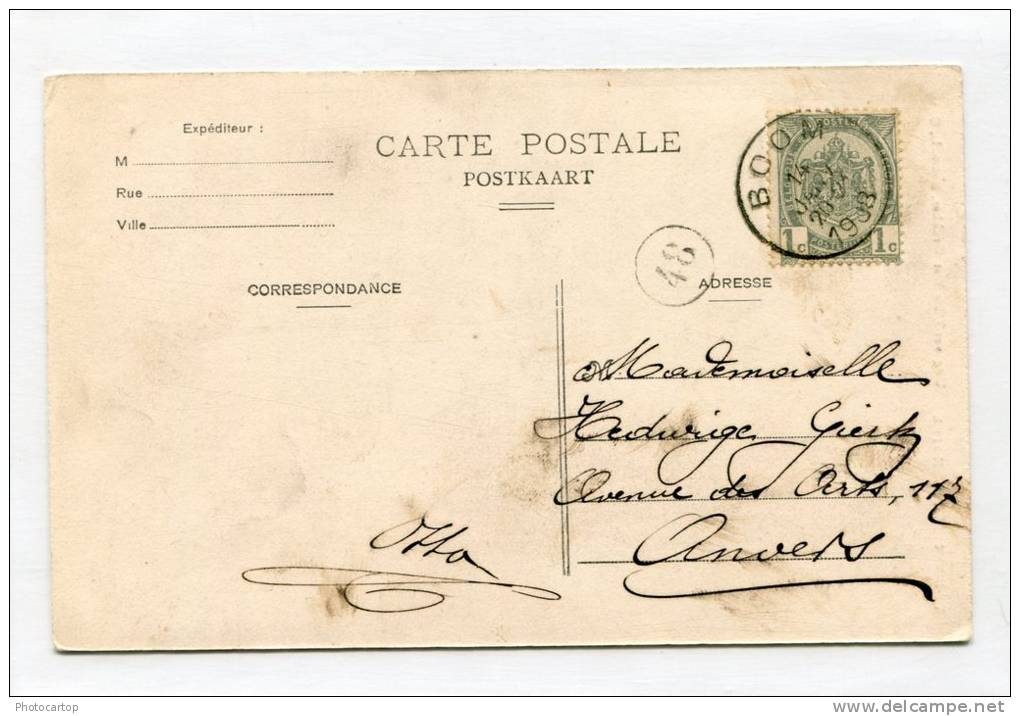 Expéditeur :
CARTE POSTALE
POSTKAART
M
Rue
Ville
BOOM
14
1908
1c 1c
48
CORRESPONDANCE
ADRESSE
Mademoiselle
Hedwige
Avenue des Arts, 117
Anvers
Otto
Photocartop
delcampe.net